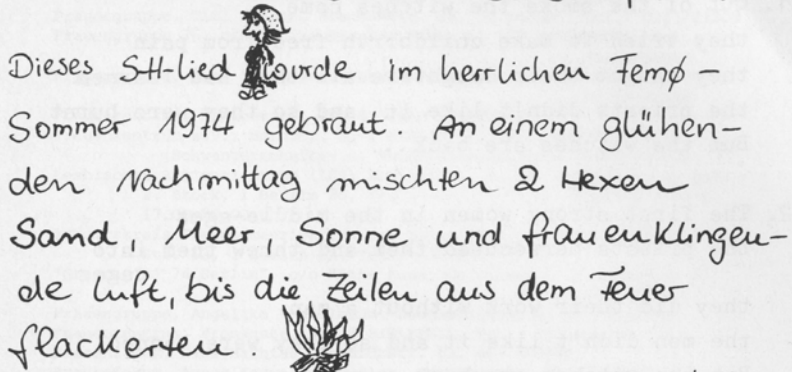 Dieses SH-lied wurde im herrlichen Femø -
Sommer 1974 gebraut. An einem glühen-
den Nachmittag mischten 2 Hexen
Sand, Meer, Sonne und frauenklingen-
de Luft, bis die Zeilen aus dem Feuer
flackerten.